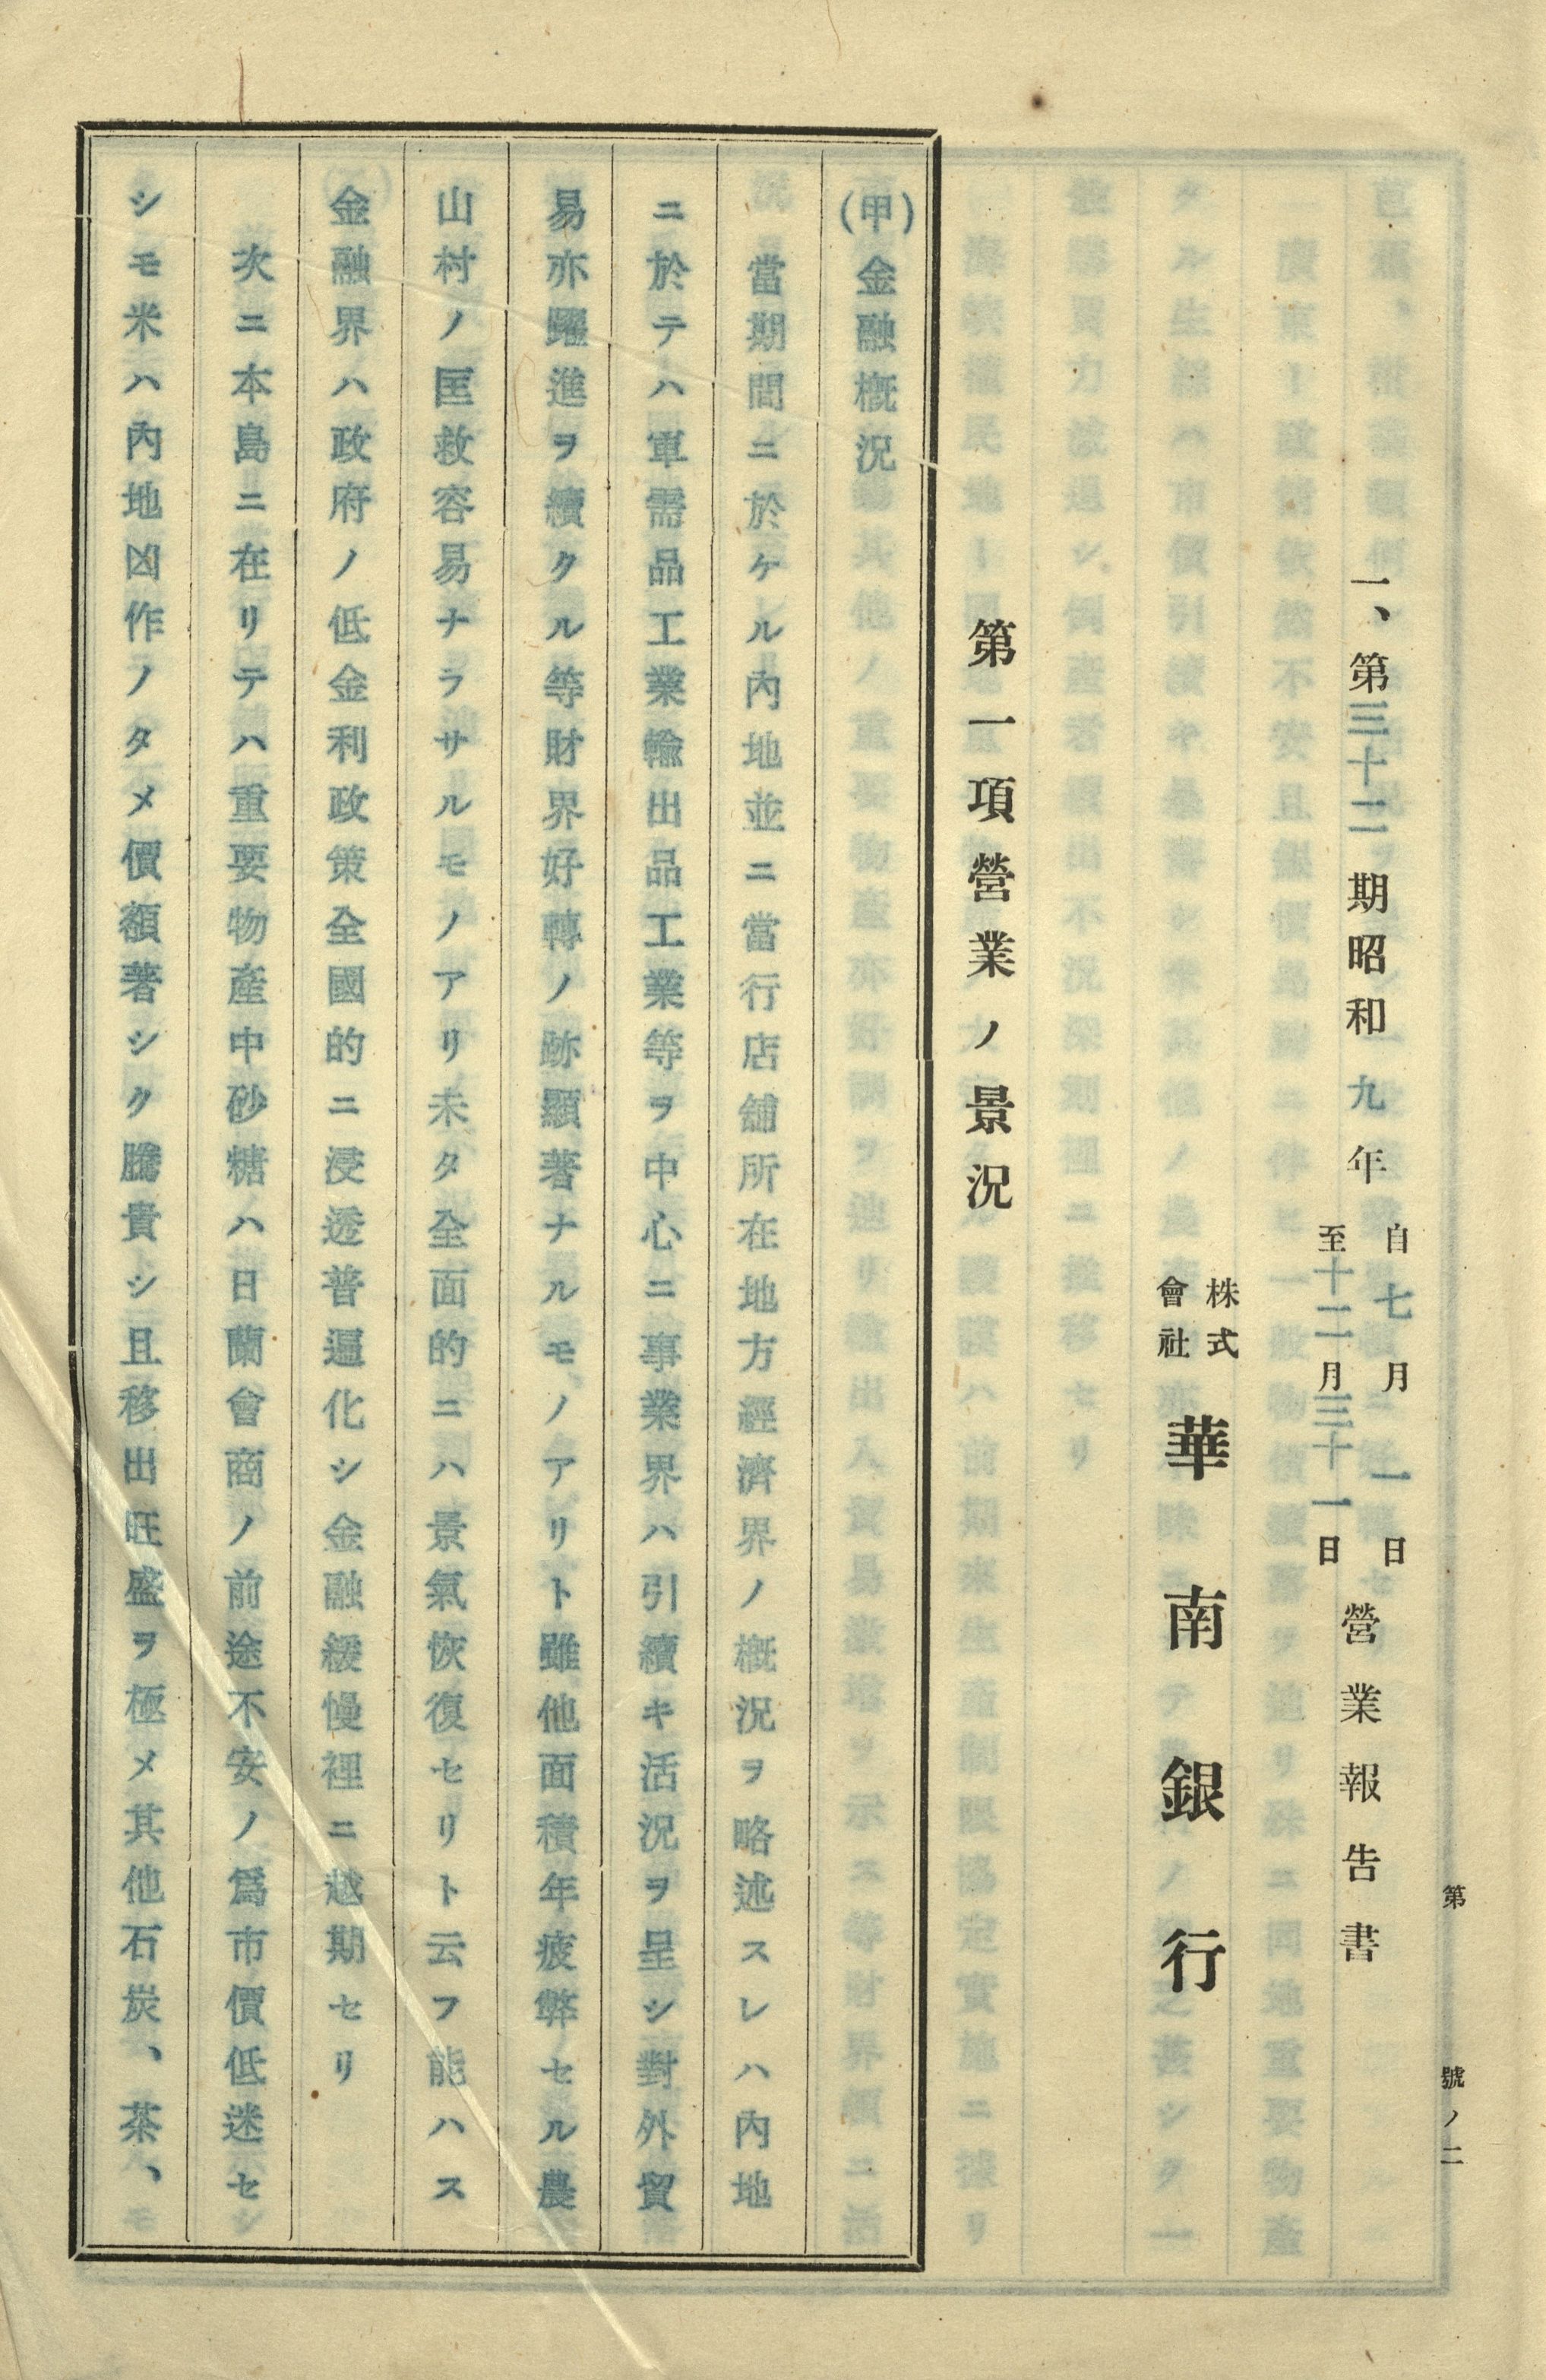 第　號ノ二
一、第三十二期昭和九年自七月一日至十二月三十一日營業報告書
株式會社華南銀行
第一項營業ノ景況
(甲)金融槪況
當期間ニ於ケル內地並ニ當行店舖所在地方經濟界ノ槪況ヲ略述スレハ內地
ニ於テハ軍需品工業輸出品工業等ヲ中心ニ事業界ハ引續キ活況ヲ呈シ對外貿
易亦躍進ヲ續クル等財界好轉ノ跡顯著ナルモノアリト雖他面積年疲弊セル農
山村ノ匡救容易ナラサルモノアリ未タ全面的ニハ景氣恢復セリト云フ能ハス
金融界ハ政府ノ低金利政策全國的ニ浸透普遍化シ金融緩慢裡ニ越期セリ
次ニ本島ニ在リテハ重要物產中砂糖ハ日蘭會商ノ前途不安ノ爲市價低迷セシ
シモ米ハ內地凶作ノタメ價額著シク騰貴シ且移出旺盛ヲ極メ其他石炭、茶、